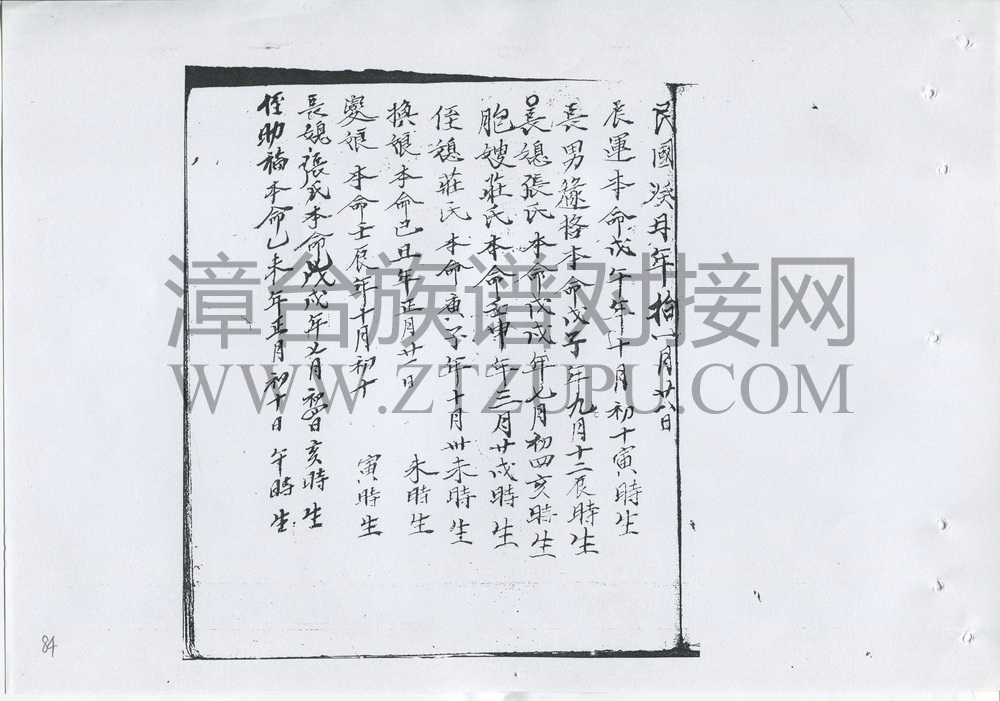 民國癸丑年拾一月廿六日
辰運本命戊午年十月初十寅時生
長男籙格本命戊子年九月十二辰時生
長媳張氏本命戊戌年七月初四亥時生
胞嫂莊氏本命壬申年三月廿戌時生
侄媳莊氏本命庚子年十月卅未時生
換娘本命己丑年正月廿二日 未時生
愛娘本命壬辰年十月初十 寅時生
長媳張氏本命戊戌年七月初四日亥時生
侄助福本命乙未年正月初十日午時生
漳台族谱对接网
WWW.ZTZUPU.COM
84